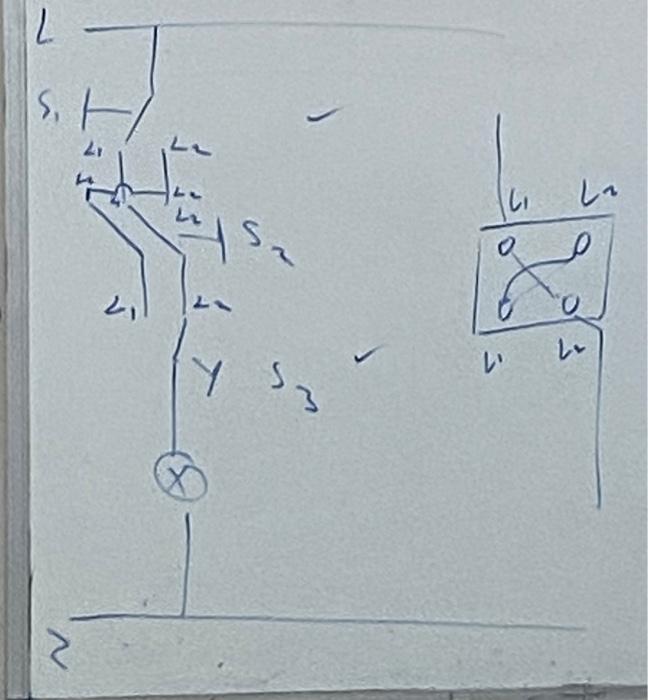 L
S1
L1 L2
L2 L1 L2
L2 S2
L1 L2
S3
X
N
L1 L2
L1 L2